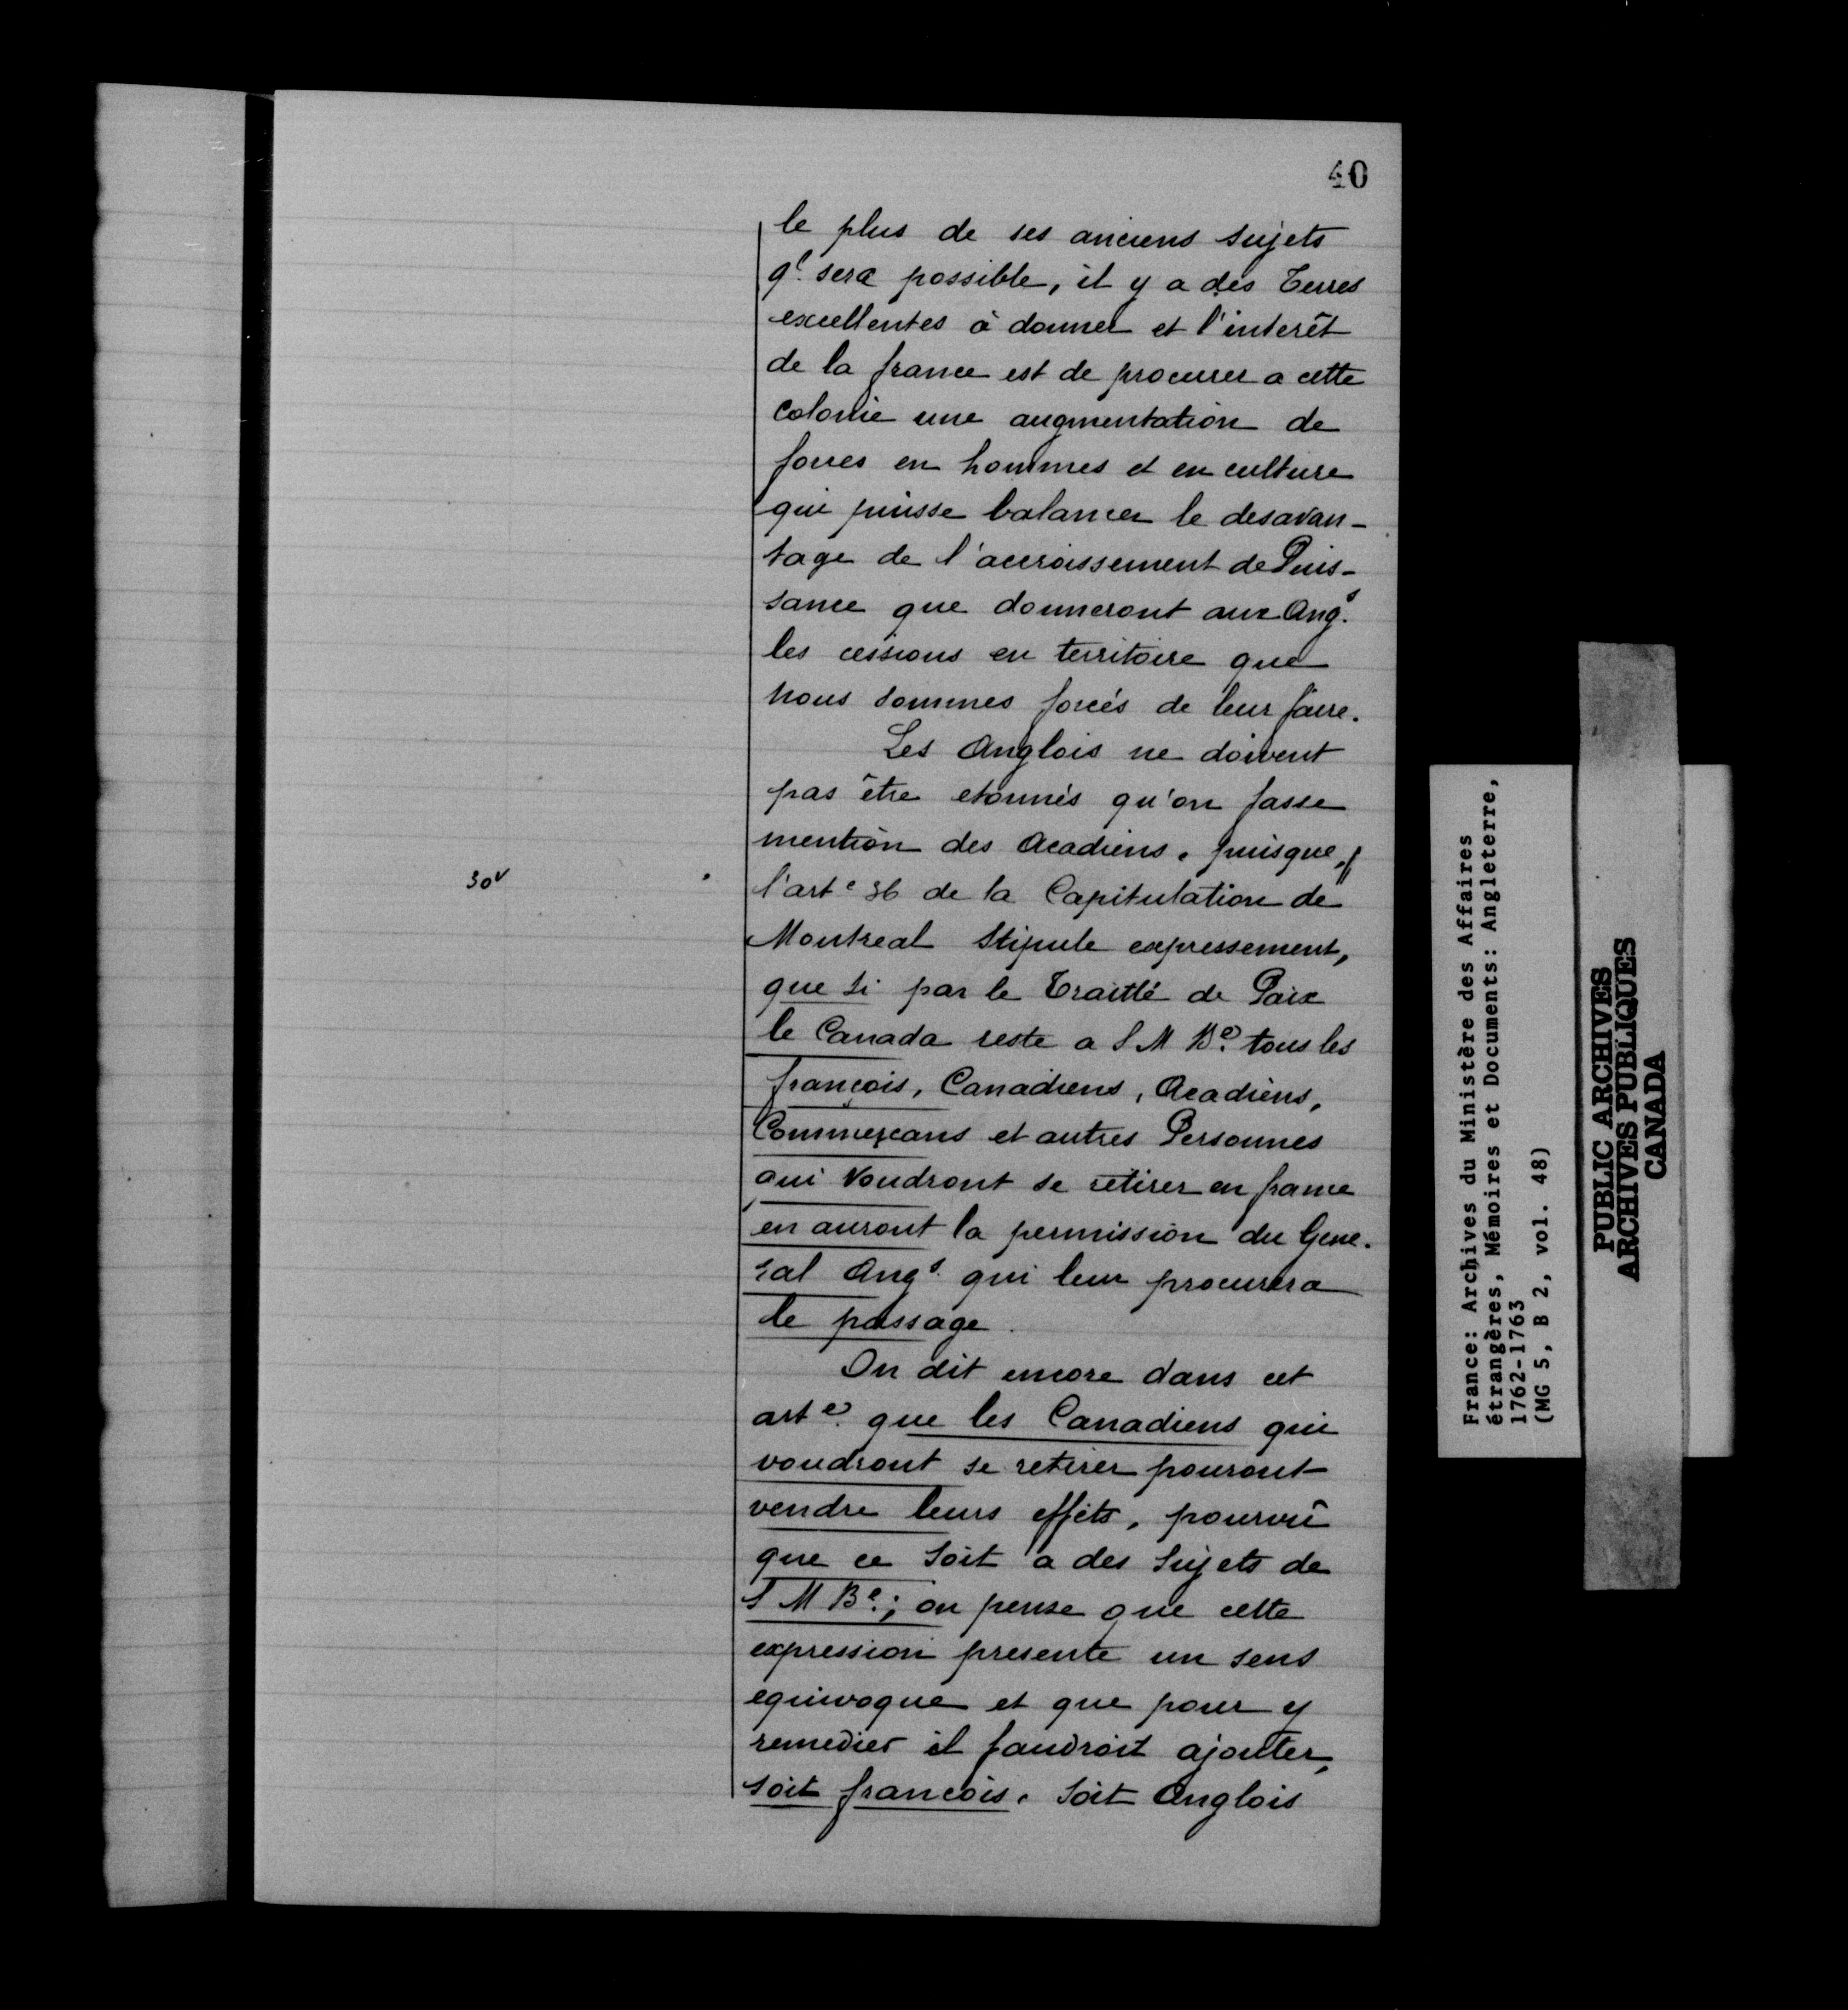 40
le plus de ses anciens sujets
ql. sera possible, il y a des Terres
excellentes à donner et l'interêt
de la france est de procurer a cette
Colonie une augmentation de
forces en hommes et en culture
qui puisse balancer le desavan-
tage de l'accroissement de Puis-
sance que donneront aux Angs.
les cessions en territoire que
nous sommes forcés de leur faire.
Les Anglois ne doivent
pas être etonnés qu'on fasse
mention des Acadiens, puisque,//
30v
l'arte 36 de la Capitulation de
Montreal Stipule expressement,
que si par le Traitté de Paix
le Canada reste a S M Be. tous les
françois, Canadiens, Acadiens,
Commerçans et autres Personnes
qui Voudront se retirer en france
en auront la permission du Gene-
ral Angs. qui leur procurera
le passage.
On dit encore dans cet
arte. que les Canadiens qui
voudront se retirer pouront
vendre leurs effets, pourvû
que ce soit a des Sujets de
S M Be.; on pense que cette
expression presente un sens
equivoque et que pour y
remedier il faudroit ajouter,
soit francois, soit Anglois
France: Archives du Ministère des Affaires
étrangères, Mémoires et Documents: Angleterre,
1762-1763
(MG 5, B 2, vol. 48)
PUBLIC ARCHIVES
ARCHIVES PUBLIQUES
CANADA